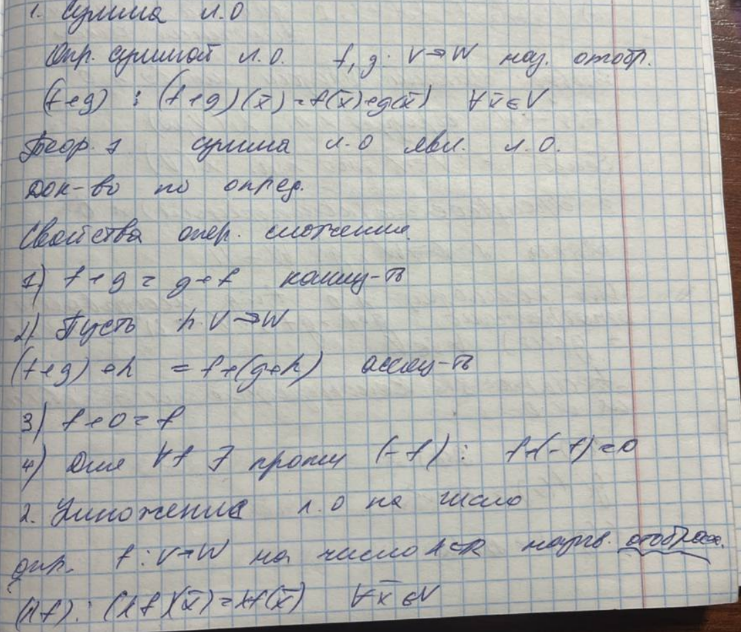 1. Сумма л.О
Опр. суммой л.О. f, g: V→W наз. отобр.
(f+g) : (f+g)(x̄)=f(x̄)+g(x̄) ∀x̄∈V
Теор. 1 сумма л.О явл. л.О.
Док-во по опред.
Свойства опер. сложения
1) f+g = g+f коммут-ть
2) Пусть h: V→W
(f+g)+h = f+(g+h) ассоц-ть
3) f+0=f
4) Для ∀f ∃ против (-f) : f+(-f)=0
2. Умножение л.О на число
Опр. f: V→W на число λ∈R назыв. отображ.
(λf) : (λf)(x̄)=λf(x̄) ∀x̄∈V